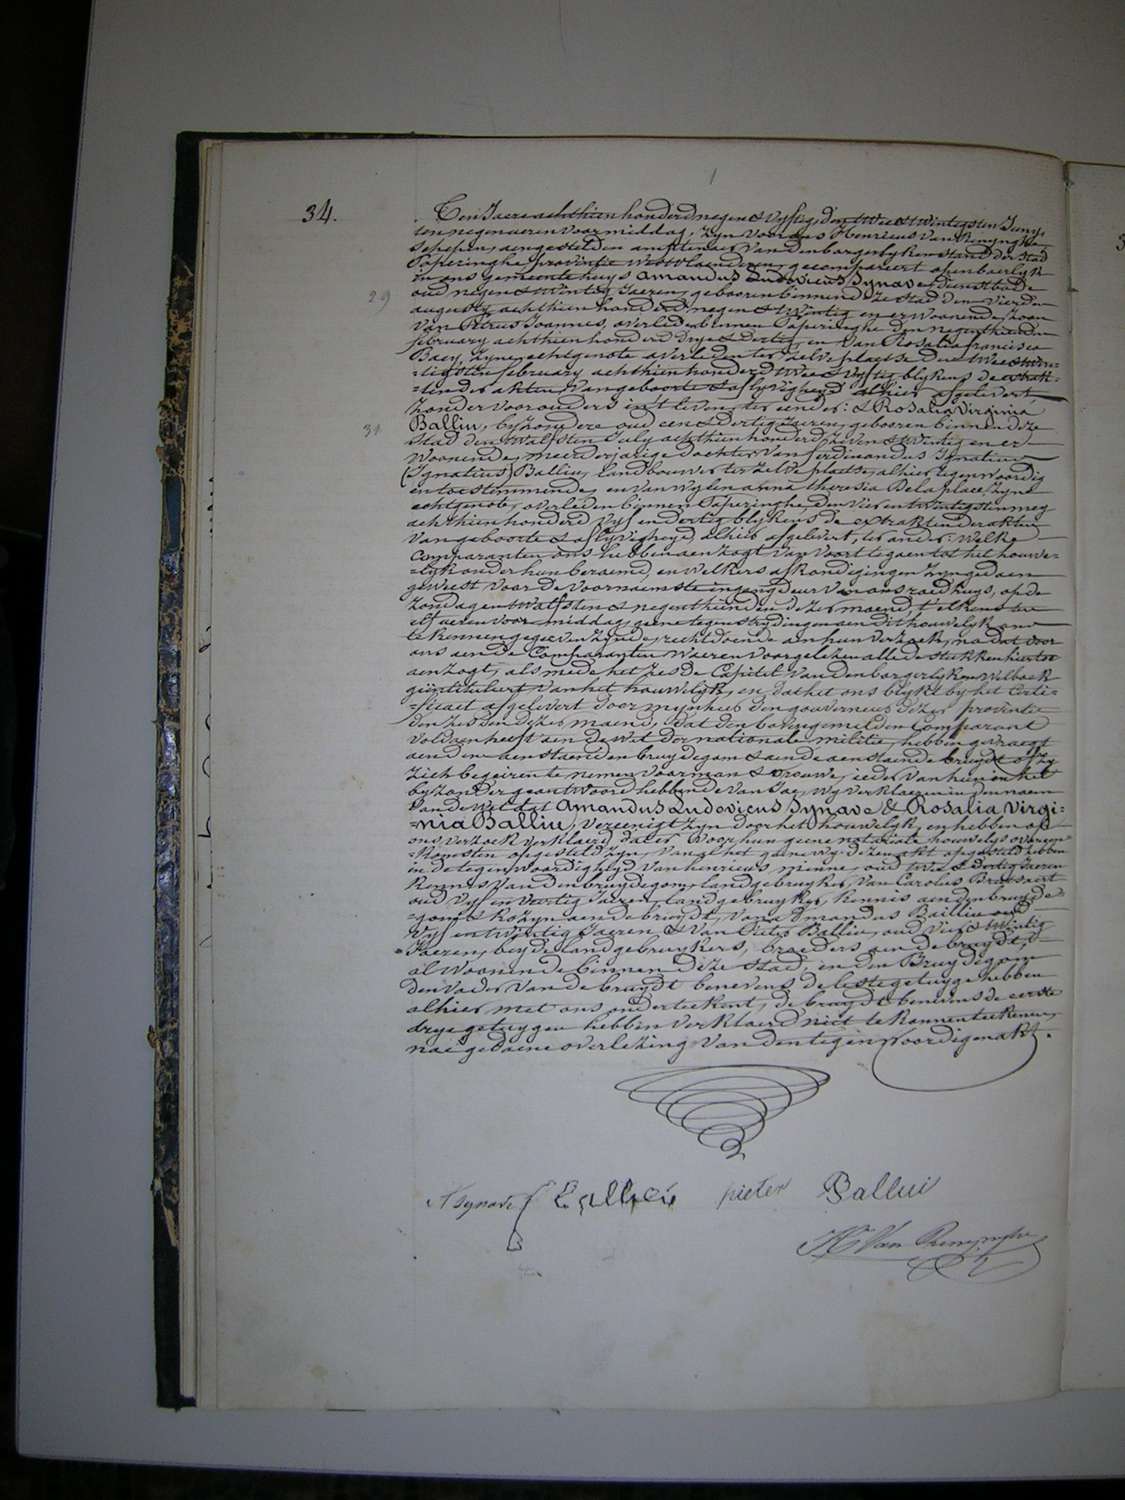 34.
Ten Jaere achthien honderd negen & vyftig, den twee & twintigsten Juny,
ten negen uren voormiddag, zyn voor ons Henricus Van Renynghe
schepen, aengestelden amptenaer van den borgerlyken stand der stad
Poperinghe provintie WestVlaenderen, gecompareert openbaerlyk
in ons gemeentehuys Amandus Ludovicus Synave, dienstbode
29
oud negen & twintig Jaeren, gebooren binnen deze stad den vierden
augusty achthien honderd negen & twintig en er woonende, zoon
van Petrus Joannes, overleden binnen Poperinghe den negenthienden
february achthien honderd drye & dertig, en van Rosalia francisca
Baey, zyne echtgenote overleden ter zelve plaetse den twee & twin-
-tigsten february achthien honderd twee & vyftig blykens de extrak-
-ten der akten van geboorte & aflyvigheyd alhier afgelevert,
zonder voorouders in't leven, ter eender: & Rosalia Virginia
31
Balliu, byzondere oud een & dertig Jaeren, gebooren binnen deze
stad den twalfsten July achthien honderd zeven & twintig en er
woonende, meerderjarige dochter van ferdinandus Ignatius
(Ignatius) Balliu, landbouwer ter zelve plaetse, alhier tegenwoordig
en toestemmende, en van wylen anna theresia Delaplace zyne
echtgenote, overleden binnen Poperinghe, den vier en twintigsten mey
achthien honderd vyf en dertig blykens de extrakten der akten
van geboorte & aflyvigheyd alhier afgelevert, ter ander: Welke
Comparanten ons hebben aenzogt van voort te gaen tot het houwe-
-lyk onder hun beraemd, en welkers afkondigingen zyn gedaen
geweest voor de voornaemste ingangdeur van ons raedhuys, op de
zondagen twalfsten & negenthienden dezer maend, t'elkens ten
elf uren voor middag, geene tegenstrydingen aen dit houwelyk ons
te kennen gegeven zynde, rechtdoende aen hun verzoek, na dat voor
ons aen de Comparanten waeren voorgelezen alle de stukken hiertoe
aenzogt, als mede het zesde Capittel van den borgerlyken Wetboek
geintituleert van het houwelyk, en dat het ons blykt by het Certi-
-ficaet afgelevert door mynheer den gouverneur dezer provintie
den zesden dezer maend, dat den bovengemelden Comparant
voldaen heeft aen de wet der nationale militie, hebben gevraegt
aen den aenstaenden bruydegom & aen de aenstaende bruydt of zy
zich begeiren te nemen voor man & vrouwe, ieder van hun en het
byzonder geantwoord hebbende van Jae, wy verklaeren in den naem
van de wet dat Amandus Ludovicus Synave & Rosalia Virgi-
-nia Balliu, vereenigt zyn door het houwelyk, en hebben op
ons verzoek verklaerd dat er voor hun geene notariale houwelyks overeen-
-komsten opgesteld zyn. Van al het gene wy dezen akt opgesteld hebben
in de tegenwoordigheyd van henricus minne, oud twee & dertig Jaeren
kennis van den bruydegom, landgebruyker, van Carolus Brassaert
oud vyf en veertig Jaeren, landgebruyker, kennis aen den bruyde-
-gom & kozyn aen de bruydt, van Amandus Bailliu oud
vyf en twintig Jaeren, & van Pieter Balliu, oud vier & twintig
Jaeren, beyde landgebruykers, broeders aen de bruydt,
al woonende binnen deze stad, en den Bruydegom
den vader van de bruydt benevens de leste getuyge hebben
alhier met ons onderteekent, de bruydt benevens de eerste
drye getuygen hebben verklaerd niet te konnen teekenen,
nae gedaene overlezing van den tegenwoordigen akt.
A Synave f Ballieu pieter Balliu
H. Van Renynghe